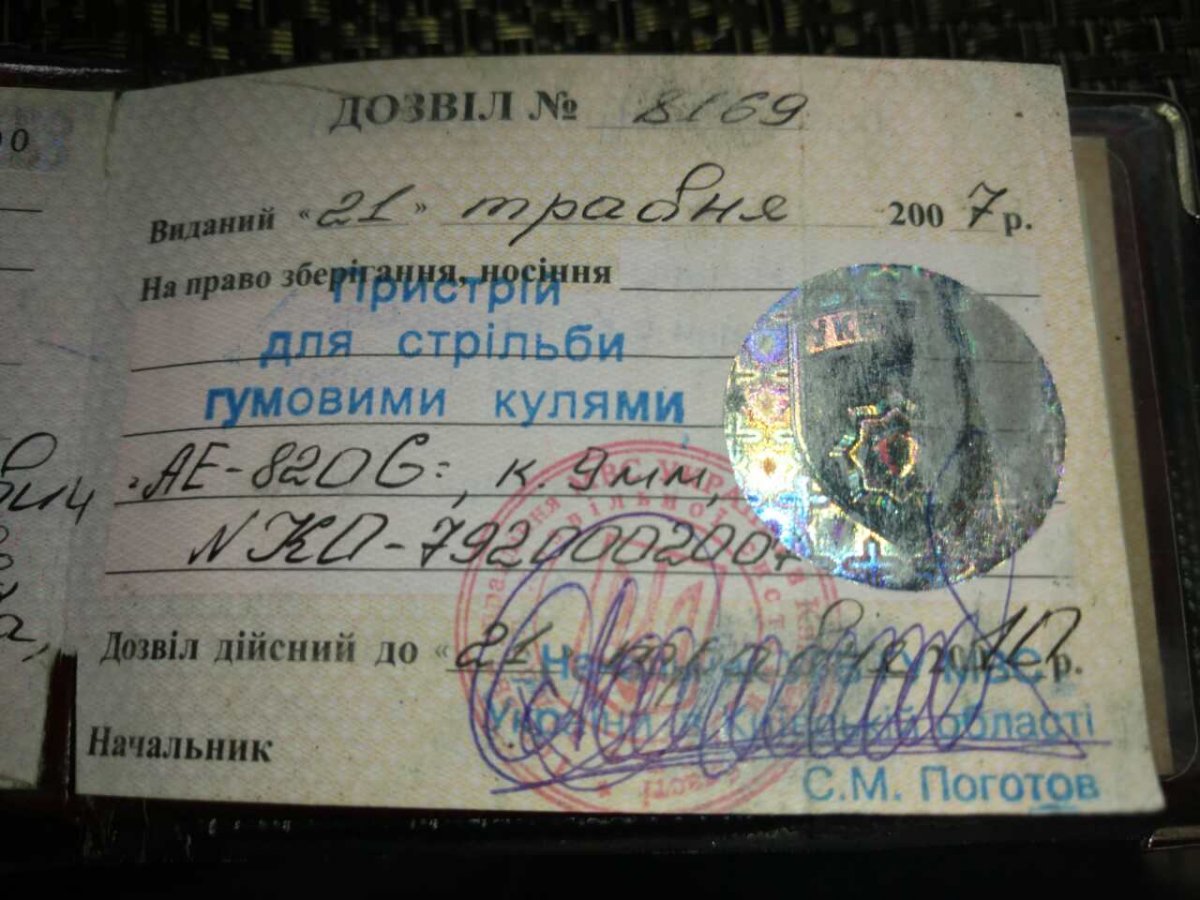 ДОЗВІЛ № 8169
Виданий «21» травня 2007 р.
На право зберігання, носіння
Пристрій
для стрільби
гумовими кулями
АЕ-820G, к. 9мм,
N КП-7920002007
Дозвіл дійсний до «21» травня 2010 р.
Начальник
України в Київській області
С.М. Поготов